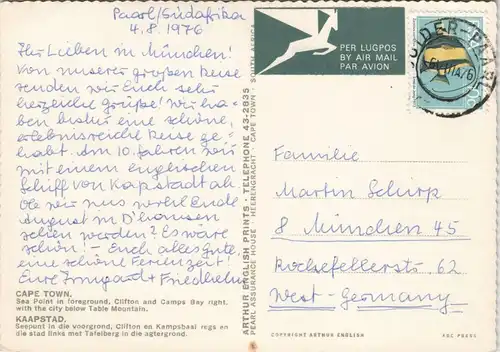 Paarl/Südafrika
4.8.1976
Ihr Lieben in München!
Von unserer großen Reise
senden wir Euch sehr
herzliche Grüße! Wir ha-
ben bisher eine schöne,
erlebnisreiche Reise ge-
habt. Am 10. fahren wir
mit einem englischen
Schiff von Kapstadt ab
Ob wir uns wohl Ende
August in D'hausen
sehen werden? Es wäre
schön! - Euch alles Gute
eine schöne Ferienzeit!
Eure Irmgard + Friedhelm
CAPE TOWN.
Sea Point in foreground, Clifton and Camps Bay right,
with the city below Table Mountain.
KAAPSTAD.
Seepunt in die voorgrond, Clifton en Kampsbaai regs en
die stad links met Tafelberg in die agtergrond.
ARTHUR ENGLISH PRINTS - TELEPHONE 43-2835
PEARL ASSURANCE HOUSE - HEERENGRACHT - CAPE TOWN - SOUTH AFRICA
PER LUGPOS
BY AIR MAIL
PAR AVION
Familie
Martin Schurp
8 München 45
Rockefellerstr. 62
West-Germany
COPYRIGHT ARTHUR ENGLISH
ABC PRESS